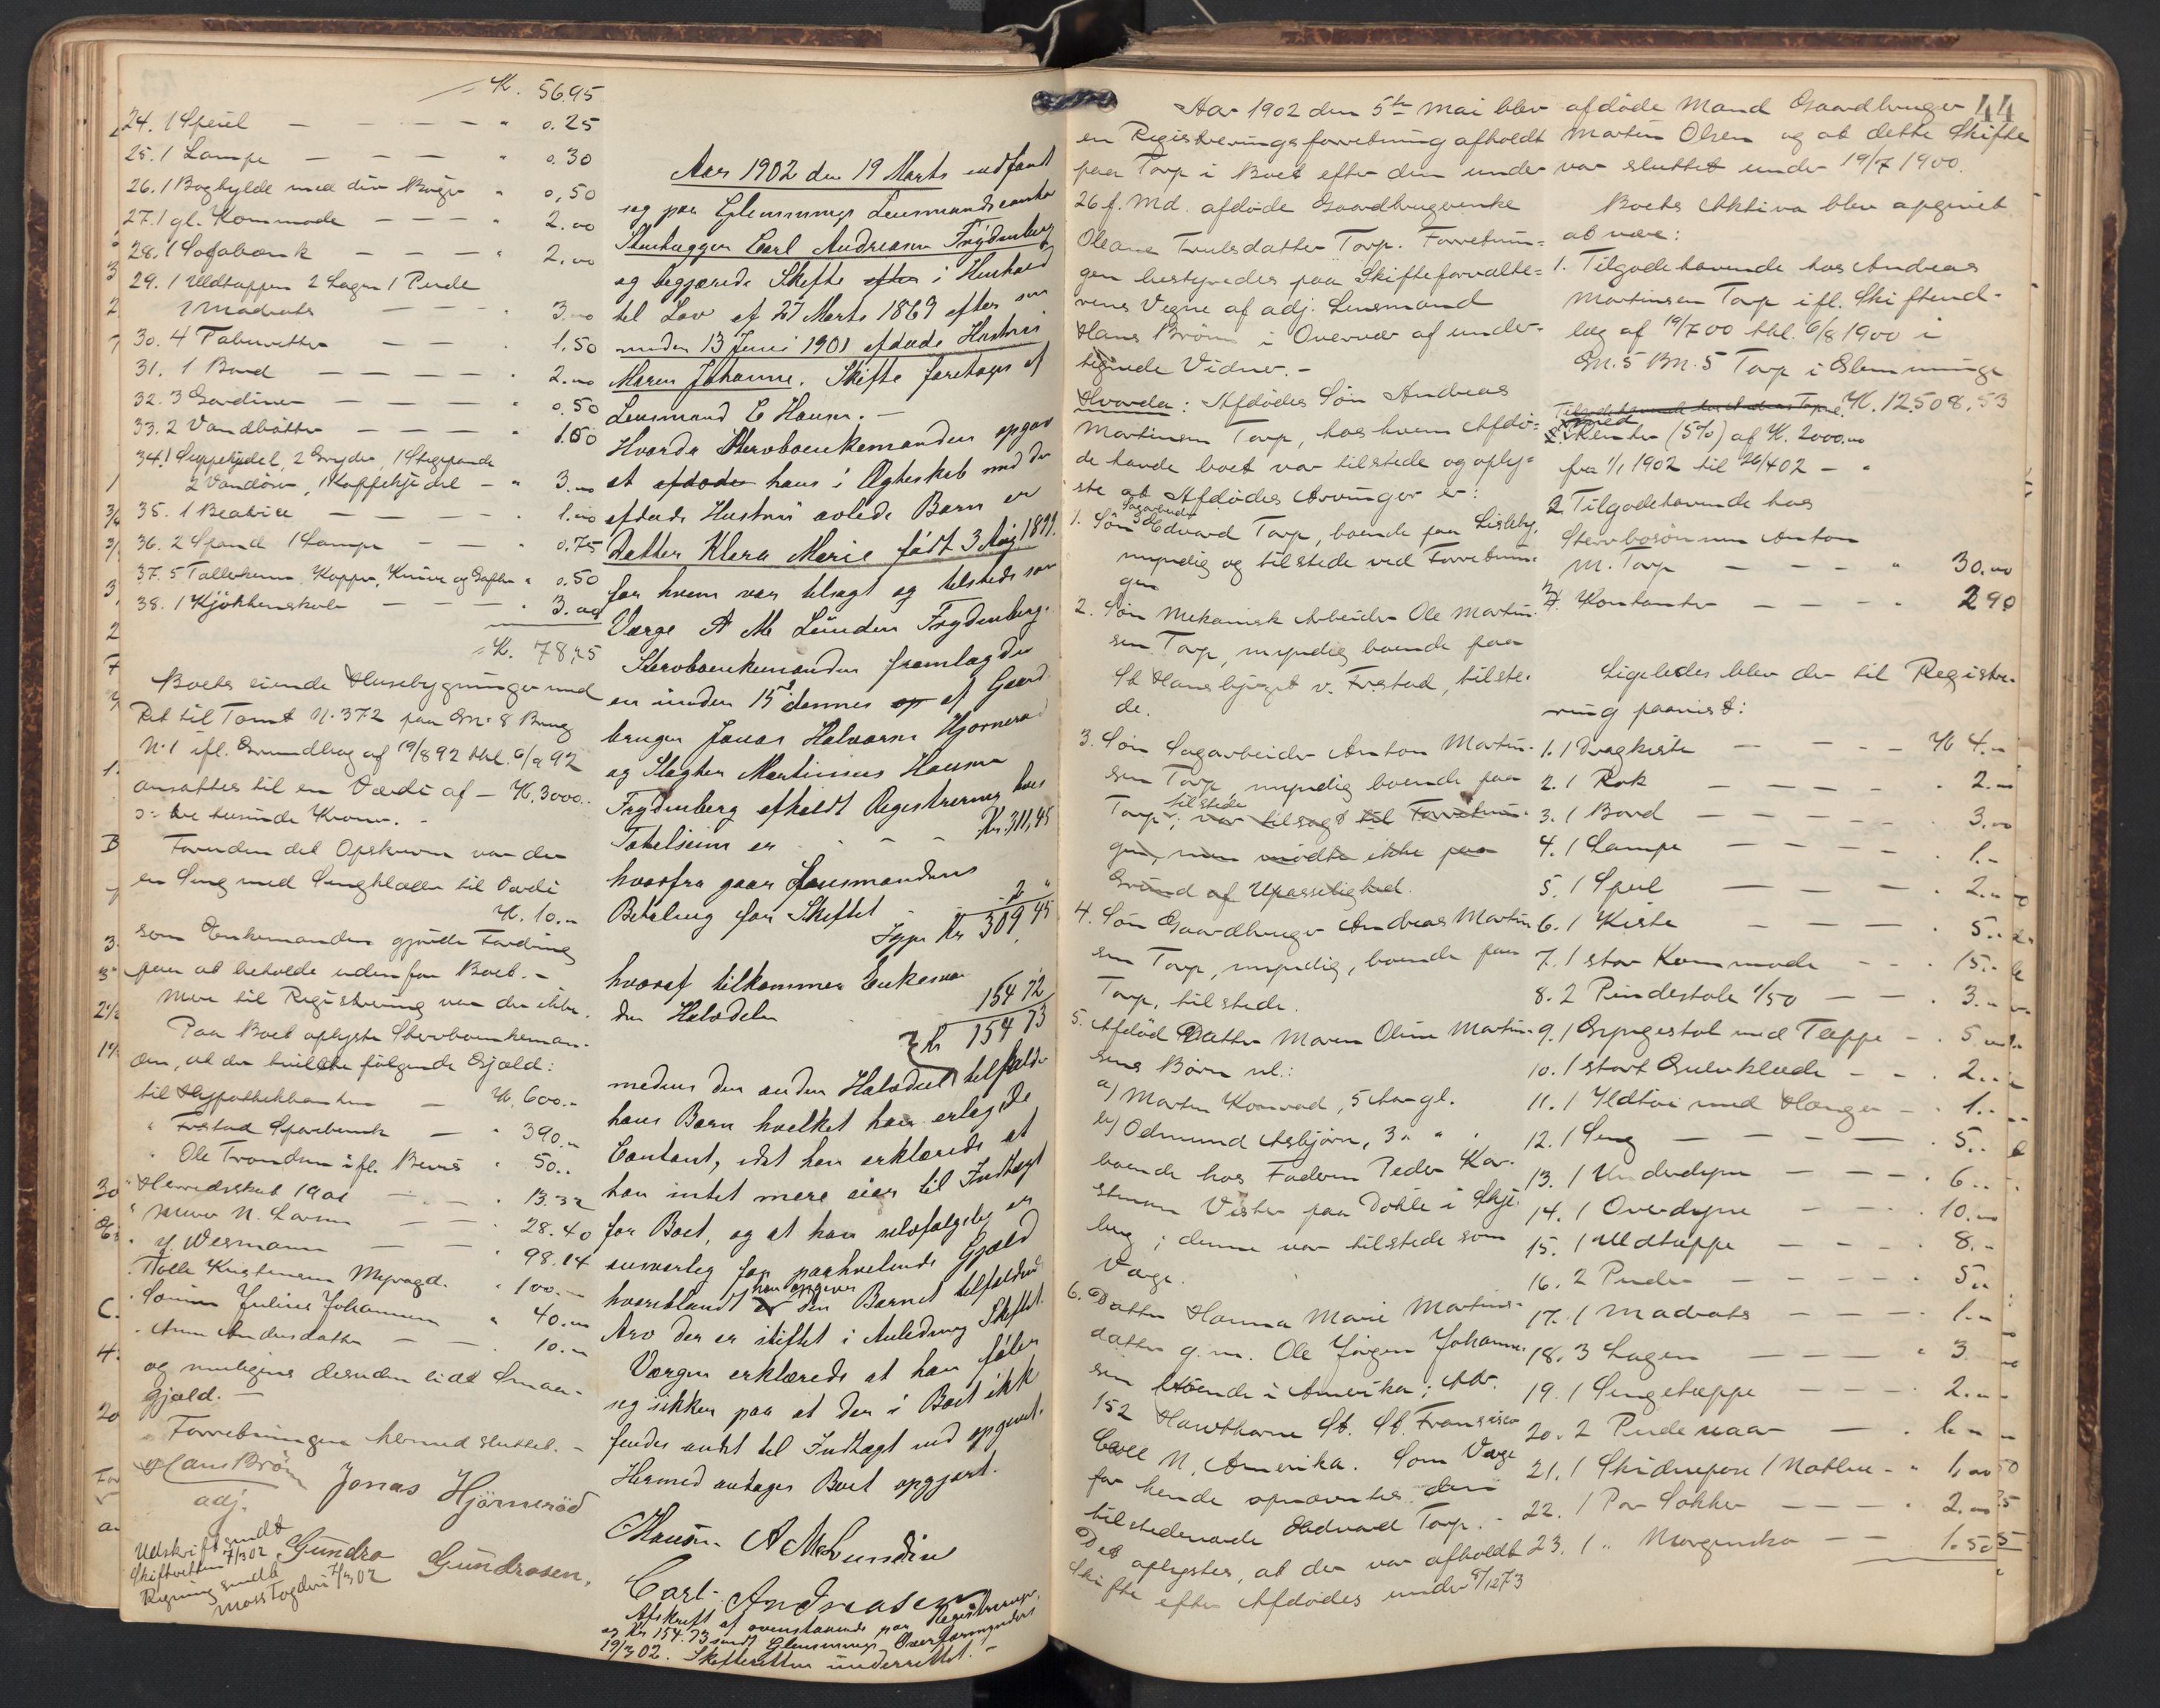 K. 56.95
24. 1 Speil — — — — " 0.25
25. 1 Lampe — — — " 0.30
26. 1 Boghylde med div Bøger " 0,50
27. 1 gl. Kommode — — — " 2.00
28. 1 Sofabænk — — — " 2.00
29. 1 Uldtæppe 2 Lagen 1 Pude
1 Madrats — — " 3.00
30. 4 Taburetter — — . 1.50
31. 1 Bord — — — — . 2.00
32. 3 Gardiner — — — " 0.50
33. 2 Vandbøtter — — — " 1.50
34. 1 Suppekjedel, 2 Gryder, 1 Stegepande
2 Vandøser, 1 Kaffekjedel — " 3.00
35. 1 Beatrice — — — . 1.00
36. 2 Spand 1 Lampe — — . 0.75
37. 5 Tallerkener, Kopper, Knive og Gafler " 0.50
38. 1 Kjøkkenskab — — — . 3.00
K. 78,75
Boets eiende Husebygninger med
Ret til Tomt N. 372 paa Gn. 8 Brug
N. 1 ifl. Grundbrev af 19/8 92 thl. 6/9 92
ansattes til en Værdi af — K. 3000..
ɔ: tre tusinde Kroner. -
Foruden det Opskrevne var der
en Seng med Sengklæder til Værdi
K. 10.-
som Enkemanden gjorde Fordring
paa at beholde udenfor Boet. -
Mere til Registrering var der ikke.
Paa Boet oplyste Stervboenkeman-
den, at der hvilede følgende Gjæld:
til Hypothekbanken — K. 600.-
" Fr.stad Sparebank — " 390.-
" Ole Trondsen ifl. Bevis " 50..
" Herredsskat 1901 — . 13.32
" Murer N. Larsen — — . 28.40
" Y. Wesmann — — " 98.14
. Nolle Kristensen Myragd. " 100.-
. Sønnen Julius Johannesen " 40.-
. Anne Andersdatter — — . 10.-
og muligens desuden lidt Smaa-
gjæld. —
Forretningen hermed sluttet. -
Hans Brøm
adj.
Jonas Hjörneröd
Gundro Gundrosen.
Udskrift sendt
Skifteretten 7/3 02
Regning sendt
Moss Fogderi 7/3 02
Aar 1902 den 19 Marts indfandt
sig paa Glemminge Lensmandscontor
Stenhugger Carl Andreasen Frydenberg
og begjærede Skifte efter i Henhold
til Lov af 27 Marts 1869 efter sin
under 13 Juni 1901 afdøde Hustru
Maren Johanne. Skifte foretages af
Lensmand C Hansen. -
Hvorda Stervboenkemanden opgav
at afdøde hans i Ægteskab med den
afdøde Hustru avlede Barn er
Datter Klara Marie født 3 Aug. 1899.
for hvem var tilsagt og tilstede som
Værge A M Lunden Frydenberg.
Stervboenkemanden fremlagde
en under 15 dennes op af Gaard-
bruger Jonas Halvorsen Hjørnerød
og Slagter Martinius Hansen
Frydenberg afholdt Registrering hvis
Totalsum er . - - Kr. 311,45
hvorfra gaar Lensmandens
Betaling for Skiftet - - 2 "
Igjen Kr 309,45
hvoraf tilkommer Enkeman
den Halvdelen . . 154 72
Kr 154 73
medens den anden Halvdel tilfalder
hans Barn hvilket han erlagde
Contant, idet han erklærede at
han intet mere eier til Indtægt
for Boet, og at han selvfølgelig er
ansvarlig for paahvilende Gjæld
hvoriblandt han opgiver er den Barnet tilfaldne
Arv der er skiftet i Anledning Skiftet.
Værgen erklærede at han føler
sig sikker paa at der i Boet ikke
findes andet til Indtægt end opgivet.
Hermed antages Boet opgjort.
CHansen A M Lundin
Carl Andreasen
Afskrift af ovenstaaende paa Registreringen
og Kr 154.73 sendt Glemminge Overformynderi
19/3 02. Skifteretten underrettet. -
44
Aar 1902 den 5te Mai blev
en Registreringsforretning afholdt
paa Torp i Boet efter den under
26 f. Md. afdøde Gaardbrugerenke
Oleane Trulsdatter Torp. Forretnin-
gen bestyredes paa Skifteforvalte-
rens Vegne af adj. Lensmand
Hans Brøm i Overvær af under-
tegnede Vidner. -
Hvorda: Afdødes Søn Andreas
Martinsen Torp, hos hvem Afdø-
de havde boet var tilstede og oply-
ste at Afdødes Arvinger er:
1. Søn Sagarbeider Edvard Torp, boende paa Lisleby,
myndig og tilstede ved Forretnin-
gen
2. Søn Mekanisk Arbeider Ole Martin-
sen Torp, myndig boende paa
St Hansbjerget v. Fr.stad, tilste-
de.
3. Søn Sagarbeider Anton Martin-
sen Torp, myndig boende paa
Torp; tilstede var tilsagt til Forretnin-
gen, men mødte ikke paa
Grund af Upasselighed.
4. Søn Gaardbruger Andreas Martin
sen Torp, myndig, boende paa
Torp, tilstede.
5. Afdød Datter Maren Oline Martin-
sens Børn nl.:
a) Martin Konrad, 5 Aar gl.
b) Odmund Asbjørn, 3 " " .
boende hos Faderen Peder Kar-
stensen Vister paa Dokke i Skje-
berg; denne var tilstede som
Værge.
6. Datter Hanna Marie Martins-
datter g.m. Ole Jørgen Johanne-
sen boende i Amerika; Adr.
152 Hawthorne St. St. Fransisco
Cal. N. Amerika. Som Værge
for hende opnævntes den
tilstedeværende Edvard Torp. -
Det oplystes, at der var afholdt
Skifte efter Afdødes under 8/12 73
afdøde Mand Gaardbruger
Martin Olsen og at dette Skifte
var sluttet under 19/7 1900.
Boets Aktiva blev opgivet
at være:
1. Tilgodehavende hos Andreas
Martinsen Torp ifl. Skifteud-
læg af 19/7 00 thl. 6/8 1900 i
Gn. 5 Bn. 5 Torp i Glemminge
K. 12508,53
Renter (5%) af K. 2000.00
fra 1/1 1902 til 26/4 02 — "
2 Tilgodehavende hos
Stervbosønnen Anton
M. Torp — — — " 30.00
3. Kontanter — — — . 290
Ligeledes blev der til Registre-
ring paavist:
1. 1 Dragkiste — — — K 4.-
2. 1 Rok — — — — . 2.-
3. 1 Bord — — — — . 3.00
4. 1 Lampe — — — — . 1.-
5. 1 Speil — — — . 2.-
6. 1 Kiste — — — . 5..
7. 1 stor Kommode — - . 15.-
8. 2 Pindestole 1/50 — — . 3.-
9. 1 Gyngestol med Tæppe - . 5.00
10. 1 stort Gulvklæde - - . 2..
11. 1 Ildtøi med Hænger - . 1.-
12. 1 Seng — — — — . 5..
13. 1 Underdyne — — — . 6..
14. 1 Overdyne — — . 10.00
15. 1 Uldtæppe — — — . 8.-
16. 2 Puder — — — . 5..
17. 1 Madrats — — — . 1.-
18. 3 Lagen — — — " 3.
19. 1 Sengetæppe — — — . 2.-
20. 2 Pudevaar — .
21. 1 Skindpen 1 Nattrøie - " 1,00
22. 1 Par Sokker — — — . 2.00
23. 1 " Morgensko — — 1.50